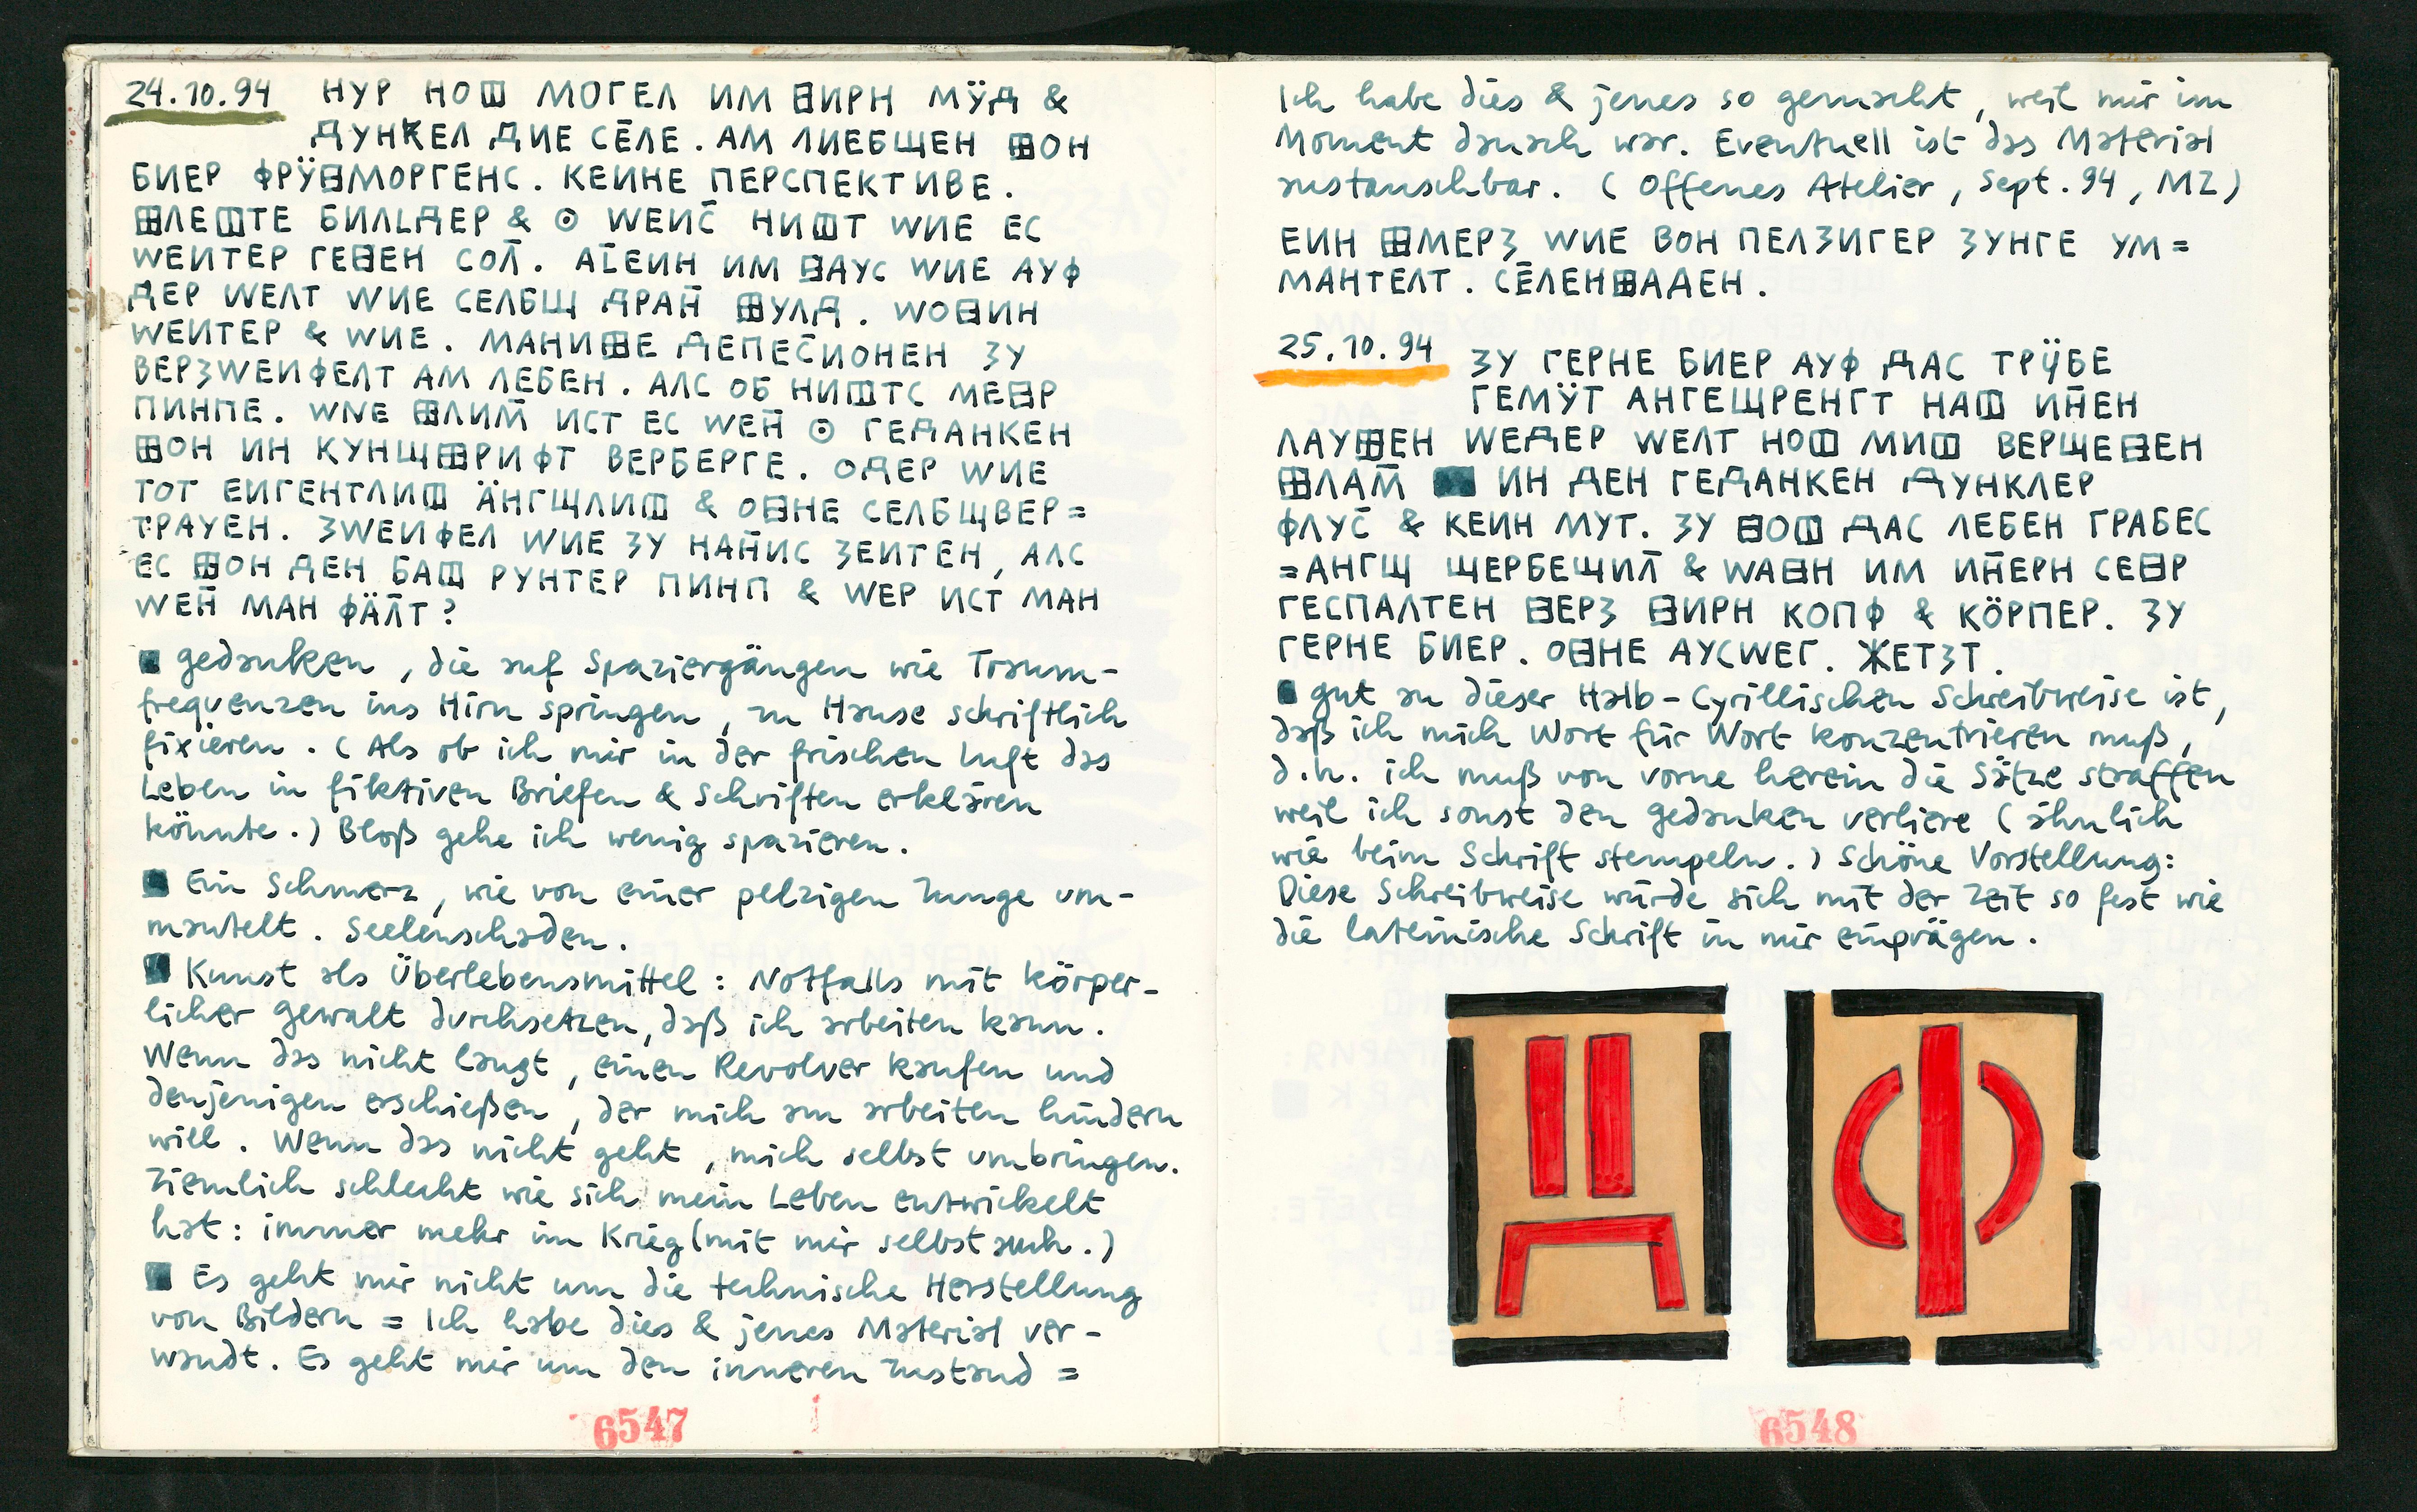 24.10.94 НУР НО◫ МОГЕЛ ИМ ⊟ИРН МЎД &
ДУНКЕЛ ДИЕ СЕ̄ЛЕ. АМ ЛИЕБЩЕН ⊞ОН
БИЕР ФРӰ⊟МОРГЕНС. КЕИНЕ ПЕРСПЕКТИВЕ.
⊞ЛЕ◫ТЕ БИЛДЕР & ⊙ WЕИС̄ НИ◫Т WИЕ ЕС
WЕИТЕР ГЕ⊟ЕН СОЛ̄. АЛ̄ЕИН ИМ ⊟АУС WИЕ АУФ
ДЕР WЕЛТ WИЕ СЕЛБЩ ДРАН̄ ⊞УЛД. WО⊟ИН
WЕИТЕР & WИЕ. МАНИ⊞Е ДЕПЕС̄ИОНЕН ЗУ
ВЕРЗWЕИФЕЛТ АМ ЛЕБЕН. АЛС ОБ НИ◫ТС МЕ⊟Р
ПИНПЕ. WИЕ ⊞ЛИМ̄ ИСТ ЕС WЕН̄ ⊙ ГЕДАНКЕН
⊞ОН ИН КУНЩ⊞РИФТ ВЕРБЕРГЕ. ОДЕР WИЕ
ТОТ ЕИГЕНТЛИ◫ ӒНГЩЛИ◫ & О⊟НЕ СЕЛБЩВЕР=
ТРАУЕН. ЗWЕИФЕЛ WИЕ ЗУ НАН̄ИС ЗЕИТЕН, АЛС
ЕС ⊞ОН ДЕН БА◫ РУНТЕР ПИНП & WЕР ИСТ МАН
WЕН̄ МАН ФӒЛ̄Т?
■ gedanken, die auf Spaziergängen wie Traum-
frequenzen ins Hirn springen, zu Hause schriftlich
fixieren. (Als ob ich mir in der frischen Luft das
Leben in fiktiven Briefen & Schriften erklären
könnte.) Bloß gehe ich wenig spazieren.
■ Ein Schmerz, wie von einer pelzigen Zunge um-
mantelt. Seelenschaden.
■ Kunst als Überlebensmittel: Notfalls mit körper-
licher Gewalt durchsetzen, daß ich arbeiten kann.
Wenn das nicht langt, einen Revolver kaufen und
denjenigen erschießen, der mich am arbeiten hindern
will. Wenn das nicht geht, mich selbst umbringen.
Ziemlich schlecht wie sich mein Leben entwickelt
hat: immer mehr im Krieg (mit mir selbst auch.)
■ Es geht mir nicht um die technische Herstellung
von Bildern = Ich habe dies & jenes Material ver-
wandt. Es geht mir um den inneren Zustand =
6547
Ich habe dies & jenes so gemacht, weil mir im
Moment danach war. Eventuell ist das Material
austauschbar. (Offenes Atelier, Sept. 94, MZ)
ЕИН ⊞МЕРЗ WИЕ ВОН ПЕЛЗИГЕР ЗУНГЕ УМ=
МАНТЕЛТ. СЕ̄ЛЕН⊞АДЕН.
25.10.94 ЗУ ГЕРНЕ БИЕР АУФ ДАС ТРӰБЕ
ГЕМӰТ АНГЕЩРЕНГТ НА◫ ИН̄ЕН
ЛАУ⊞ЕН WЕДЕР WЕЛТ НО◫ МИ◫ ВЕРЩЕ⊟ЕН
⊞ЛАМ̄ ■ ИН ДЕН ГЕДАНКЕН ДУНКЛЕР
ФЛУС̄ & КЕИН МУТ. ЗУ ⊟О◫ ДАС ЛЕБЕН ГРАБЕС
=АНГЩ ЩЕРБЕЩИЛ̄ & WА⊟Н ИМ ИН̄ЕРН СЕ⊟Р
ГЕСПАЛТЕН ⊟ЕРЗ ⊟ИРН КОПФ & КӦРПЕР. ЗУ
ГЕРНЕ БИЕР. О⊟НЕ АУСWЕГ. ЖЕТЗТ.
■ gut an dieser Halb-Cyrillischen Schreibweise ist,
daß ich mich Wort für Wort konzentrieren muß,
d.h. ich muß von vorne herein die Sätze straffen
weil ich sonst den gedanken verliere (ähnlich
wie beim Schrift stempeln.) Schöne Vorstellung:
Diese Schreibweise würde sich mit der Zeit so fest wie
die lateinische Schrift in mir einprägen.
Д Ф
6548